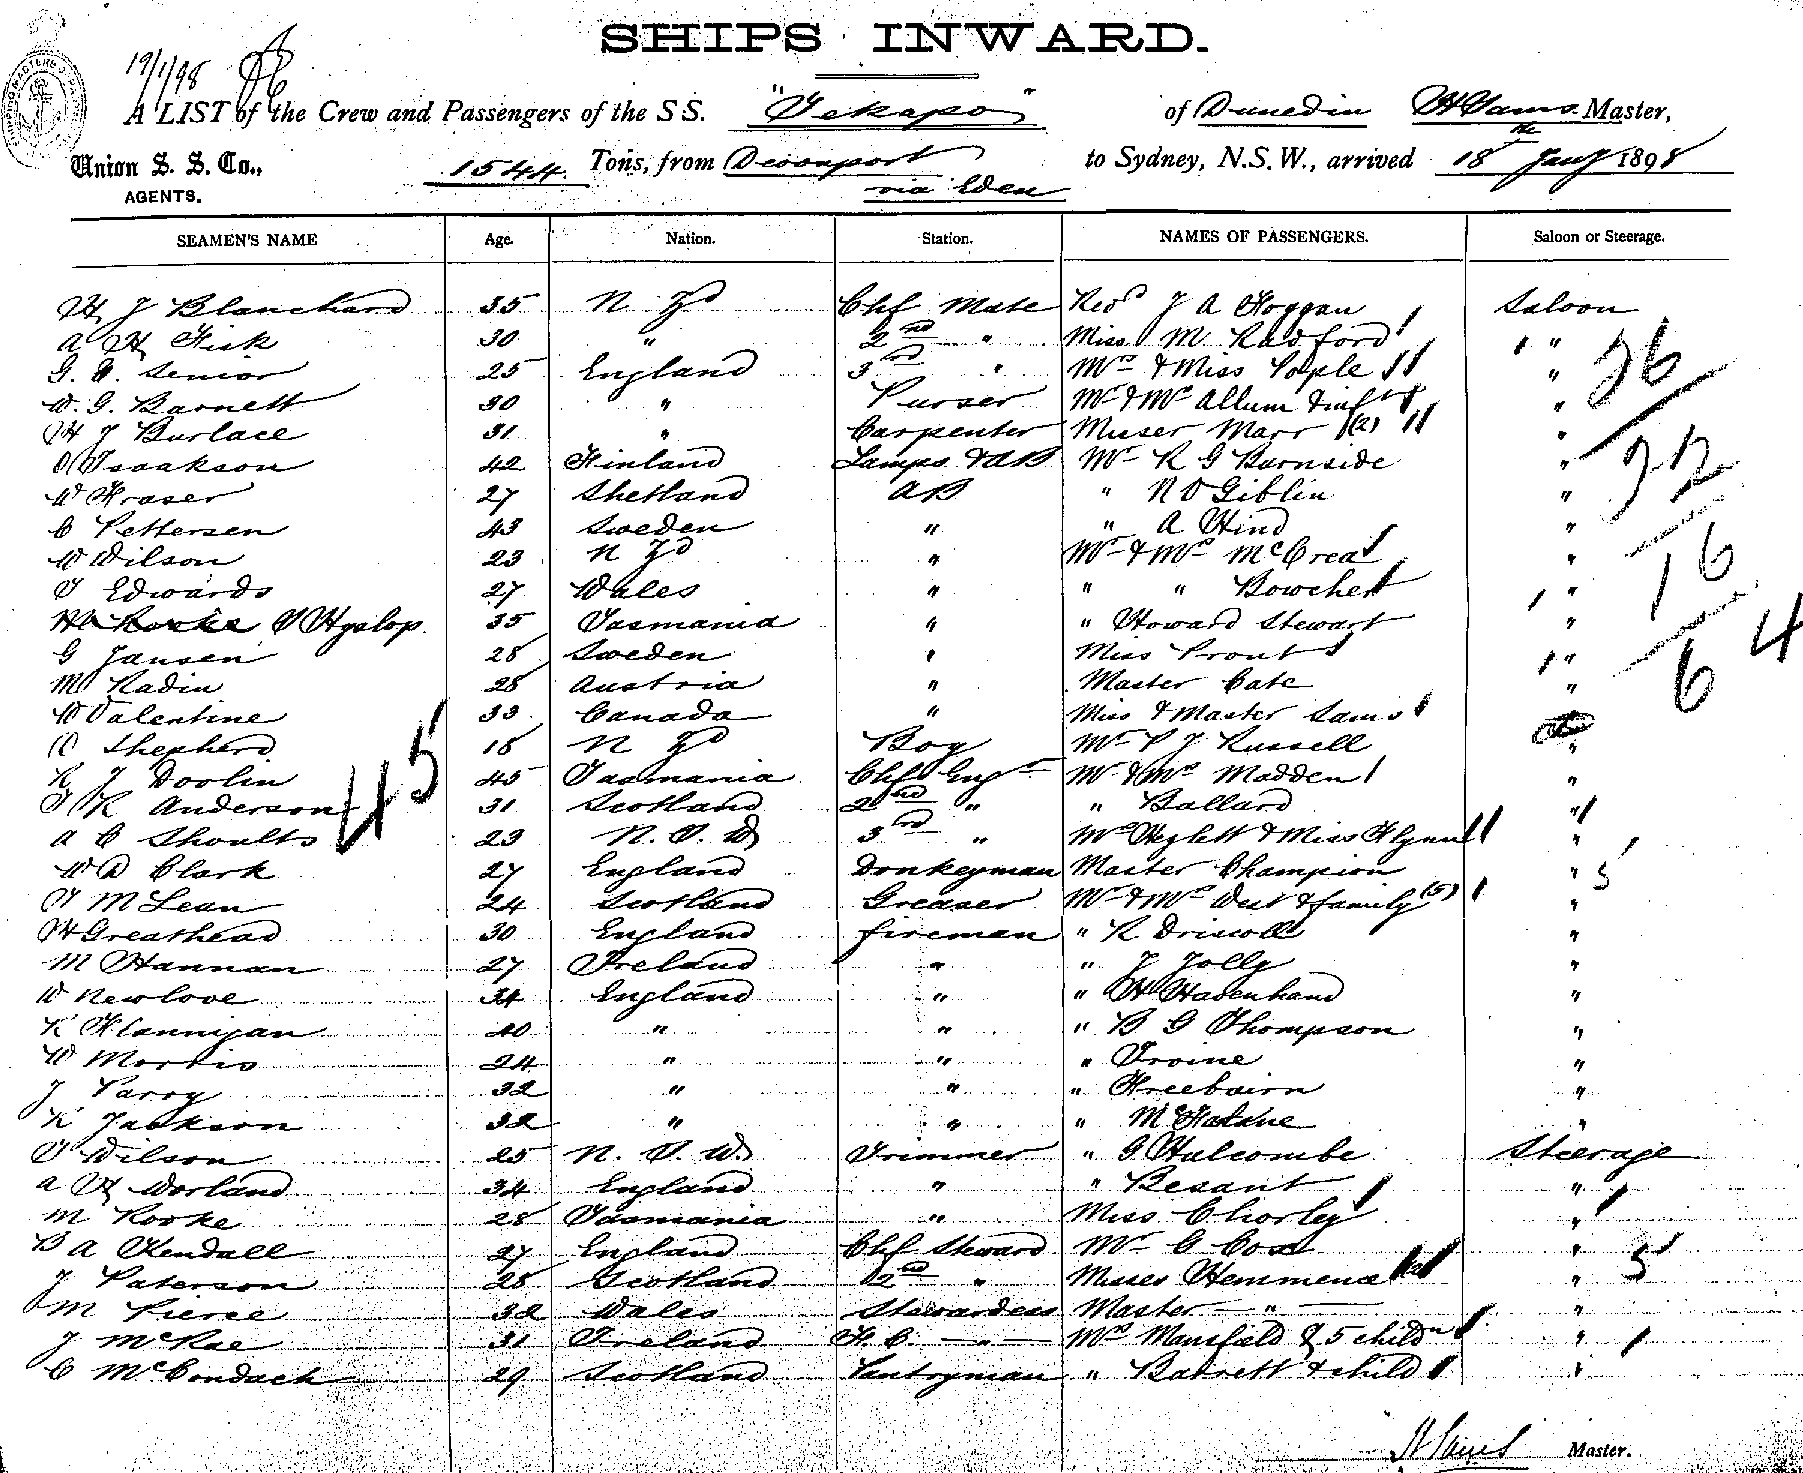 SHIPS INWARD.
19/1/98
A LIST of the Crew and Passengers of the S S. "Tekapo" of Dunedin W Sams. Master,
Union S. S. Co., AGENTS. 1544 Tons, from Devonport via Eden to Sydney, N.S.W., arrived 18th Jany 1898
SEAMEN'S NAME Age. Nation. Station. NAMES OF PASSENGERS. Saloon or Steerage.
W J Blanchard 35 N Zd Chf Mate Revd J A Hoggan Saloon
A W Fisk 30 " 2nd " Miss M Radford "
G. A. Senior 25 England 3rd " Mrs & Miss Pople "
W. G. Barnett 30 " Purser Mr & Mrs Allum & inft "
W J Burlace 31 " Carpenter Misses Marr (2) "
Isaakson 42 Finland Lamps & AB Mr R G Burnside "
W Fraser 27 Shetland AB " N O Giblin "
C Pettersen 43 Sweden " " A Hind "
W Wilson 23 N Zd " Mr & Mrs McCrea "
T Edwards 27 Wales " " " Bowchett "
T Hyslop 35 Tasmania " " Howard Stewart "
G Jansen 28 Sweden " Miss Prout "
M Radin 28 Austria " Master Cate "
W Valentine 33 Canada " Miss & Master Sams "
C Shepherd 18 N Zd Boy Mr P J Russell "
R J Doolin 45 Tasmania Chf Engr Mr & Mrs Madden "
T R Anderson 31 Scotland 2nd " " Ballard "
A C Shoults 23 N. S. W 3rd " Mrs Heylett & Miss Flynn "
W D Clark 27 England Donkeyman Master Champion "
T McLean 24 Scotland Greaser Mr & Mrs West & family (5) "
W Greathead 30 England fireman " R Driscoll "
M Hannan 27 Ireland " " J Jolly "
W Newlove 34 England " " W Wadenhand "
R Flannigan 40 " " " B G Thompson "
W Morris 24 " " " Irvine "
J Parry 32 " " " Freebairn "
R Jackson 32 " " " McHaldne "
T Wilson 25 N. S. W. Trimmer " G Halcombe Steerage
A W Worland 34 England " " Besant "
M Rooke 28 Tasmania " Miss Chorley "
B A Kendall 27 England Chf Steward Mr C Cox "
J Paterson 28 Scotland 2nd " Misses Hemmence (2) "
M Pierce 32 Wales Stewardess Master — " — "
J McRae 31 Ireland F. C. — " — Mrs Mansfield & 5 childn "
C McCondach 29 Scotland Pantryman " Barrett & child "
45
26
32
16
6
4
5
5
W Sams Master.